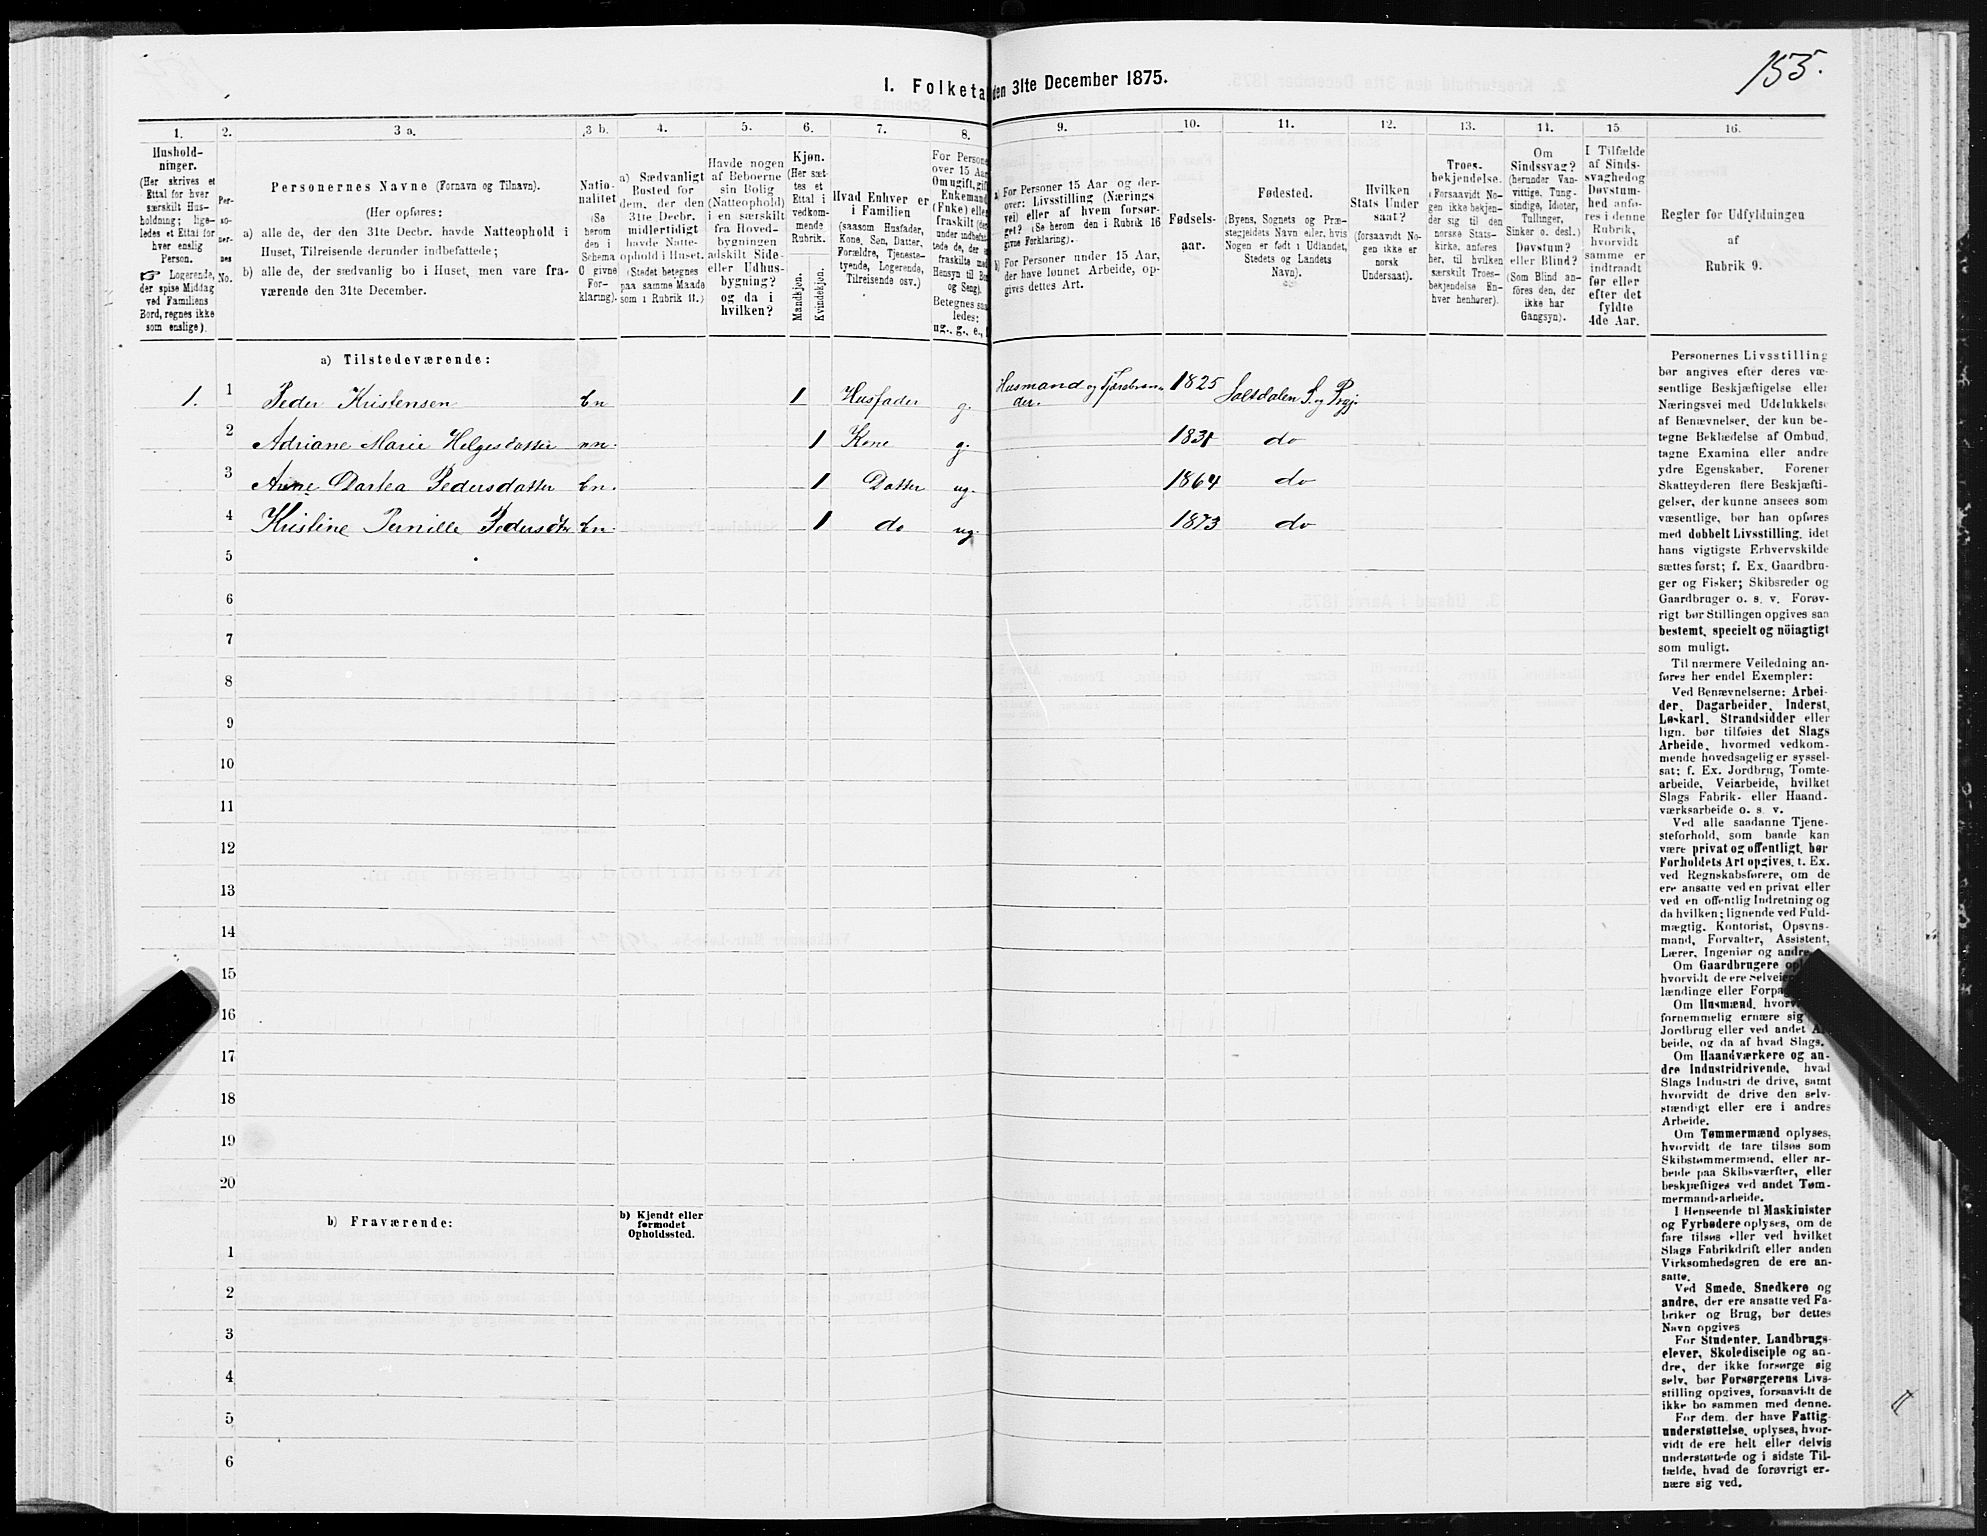 155.
I. Folketa den 31te December 1875.
1.
Hushold-
ninger.
(Her skrives et
Ettal for hver
særskilt Hus-
holdning; lige-
ledes et Ettal for
hver enslig
Person.
☞ Logerende,
der spise Middag
ved Familiens
Bord, regnes ikke
som enslige).
2.
Per-
so-
ner-
nes
No.
3 a.
Personernes Navne (Fornavn og Tilnavn).
(Her opføres:
a) alle de, der den 31te Decbr. havde Natteophold i
Huset, Tilreisende derunder indbefattede;
b) alle de, der sædvanlig bo i Huset, men vare fra-
værende den 31te December.
3 b.
Natio-
nalitet
(Se
herom
den i
Schema
O givne
For-
klaring).
4.
a) Sædvanligt
Bosted for
dem, der den
31te Decbr.
midlertidigt
havde Natte-
ophold i Huset.
(Stedet betegnes
paa samme Maade
som i Rubrik 11.)
5.
Havde nogen
af Beboerne
sin Bolig
(Natteophold)
i en særskilt
fra Hoved-
bygningen
adskilt Side-
eller Udhus-
bygning?
og da i
hvilken?
6.
Kjøn.
(Her sæt-
tes et
Ettal i
vedkom-
mende
Rubrik.
Mandkjøn.
Kvindekjøn.
7.
Hvad Enhver er
i Familien
(saasom Husfader,
Kone, Søn, Datter,
Forældre, Tjeneste-
tyende, Logerende,
Tilreisende osv.)
8.
For Persone
over 15 Aar
Om ugift, gift
Enkemand
(Enke) elle
fraskilt (der
under indbefat-
tede de, der e
fraskilte med
Hensyn til Bor
og Seng).
Betegnes saa
ledes:
ug., g., e., f
9.
a) For Personer 15 Aar og der-
over: Livsstilling (Nærings
vei) eller af hvem forsør-
get? (Se herom den i Rubrik 16
givne Forklaring).
b) For Personer under 15 Aar,
der have lønnet Arbeide, op-
gives dettes Art.
10.
Fødsels-
aar.
11.
Fødested.
(Byens, Sognets og Præ-
stegjeldets Navn eller, hvis
Nogen er født i Udlandet,
Stedets og Landets
Navn).
12.
Hvilken
Stats Under
saat?
(forsaavidt No-
gen ikke er
norsk
Undersaat).
13.
Troes-
bekjendelse.
(Forsaavidt No-
gen ikke bekjen-
der sig til den
norske Stats-
kirke, anføres
her, til hvilken
særskilt Troes-
bekjendelse En-
hver henhører).
14.
Om
Sindssvag?
(herunder Van-
vittige, Tung-
sindige, Idioter,
Tullinger,
Sinker o. desl.)
Døvstum?
eller Blind?
(Som Blind an-
føres den, der
ikke har
Gangsyn).
15.
I Tilfælde
af Sinds-
svaghed og
Døvstum-
hed anfø-
res i denne
Rubrik,
hvorvidt
samme er
indtraadt
før eller
efter det
fyldte
4de Aar.
16.
Regler for Udfyldningen
af
Rubrik 9.
a) Tilstedeværende:
1. 1 Peder Kristensen kn 1 Husfader g. Husmand og Tjærebræn= der. 1825 Saltdalen S. og Prgj.
2 Adriane Marie Helgesdatter nn. 1 Kone g. 1831 do
3 Anne Dortea Pedersdatter kn. 1 Datter ug. 1864 do
4 Kristine Pernille Pedersdtr kn. 1 do ug. 1873 do
5
6
7
8
9
10
11
12
13
14
15
16
17
18
19
20
b) Fraværende:
b) Kjendt eller
formodet
Opholdssted.
1
2
3
4
5
6
Personernes Livsstilling
bør angives efter deres væ-
sentlige Beskjæftigelse eller
Næringsvei med Udelukkelse
af Benævnelser, der kun be-
tegne Beklædelse af Ombud,
tagne Examina eller andre
ydre Egenskaber. Forener
Skatteyderen flere Beskjæfti-
gelser, der kunne ansees som
væsentlige, bør han opføres
med dobbelt Livsstilling, idet
hans vigtigste Erhvervskilde
sættes først; f. Ex. Gaardbru-
ger og Fisker; Skibsreder og
Gaardbruger o. s. v. Forøv-
rigt bør Stillingen opgives saa
bestemt, specielt og nöiagtigt
som muligt.
Til nærmere Veiledning an-
føres her endel Exempler:
Ved Benævnelserne: Arbei-
der, Dagarbeider, Inderst,
Løskarl, Strandsidder eller
lign. bør tilføies det Slags
Arbeide, hvormed vedkom-
mende hovedsagelig er syssel-
sat; f. Ex. Jordbrug, Tomte-
arbeide, Veiarbeide, hvilket
Slags Fabrik- eller Haand-
værksarbeide o. s. v.
Ved alle saadanne Tjene-
steforhold, som baade kan
være privat og offentligt, bør
Forholdets Art opgives, t. Ex.
ved Regnskabsførere, om de
ere ansatte ved en privat eller
ved en offentlig Indretning og
da hvilken; lignende ved Fuld-
mægtig, Kontorist, Opsyns-
mand, Forvalter, Assistent,
Lærer, Ingeniør og andre.
Om Gaardbrugere opl
hvorvidt de ere Selveier
lændinge eller Forpa
Om Husmænd, hvor
fornemmelig ernære sig
Jordbrug eller ved andet A
beide, og da af hvad Slags.
Om Haandværkere og an-
dre Industridrivende, hvad
Slags Industri de drive, samt
hvorvidt de drive den selv-
stændigt eller ere i andres
Arbeide.
Om Tømmermænd oplyses,
hvorvidt de fare tilsøs som
Skibstømmermænd, eller ar-
beide paa Skibsværfter, eller
beskjæftiges ved andet Tøm-
mermandsarbeide.
I Henseende til Maskinister
og Fyrbødere oplyses, om de
fare tilsøs eller ved hvilket
Slags Fabrikdrift eller anden
Virksomhedsgren de ere an-
satte.
Ved Smede, Snedkere og
andre, der ere ansatte ved Fa-
briker og Brug, bør dettes
Navn opgives
For Studenter, Landbrugs-
elever, Skoledisciple og an-
dre, der ikke forsørge sig
selv, bør Forsørgerens Livs-
stilling opgives, forsaavidt de
ikke bo sammen med denne.
For dem, der have Fattig-
understøttelse, oplyses, hvor-
vidt de ere helt eller delvis
understøttede og i sidste Til-
fælde, hvad de forøvrigt er-
nære sig ved.